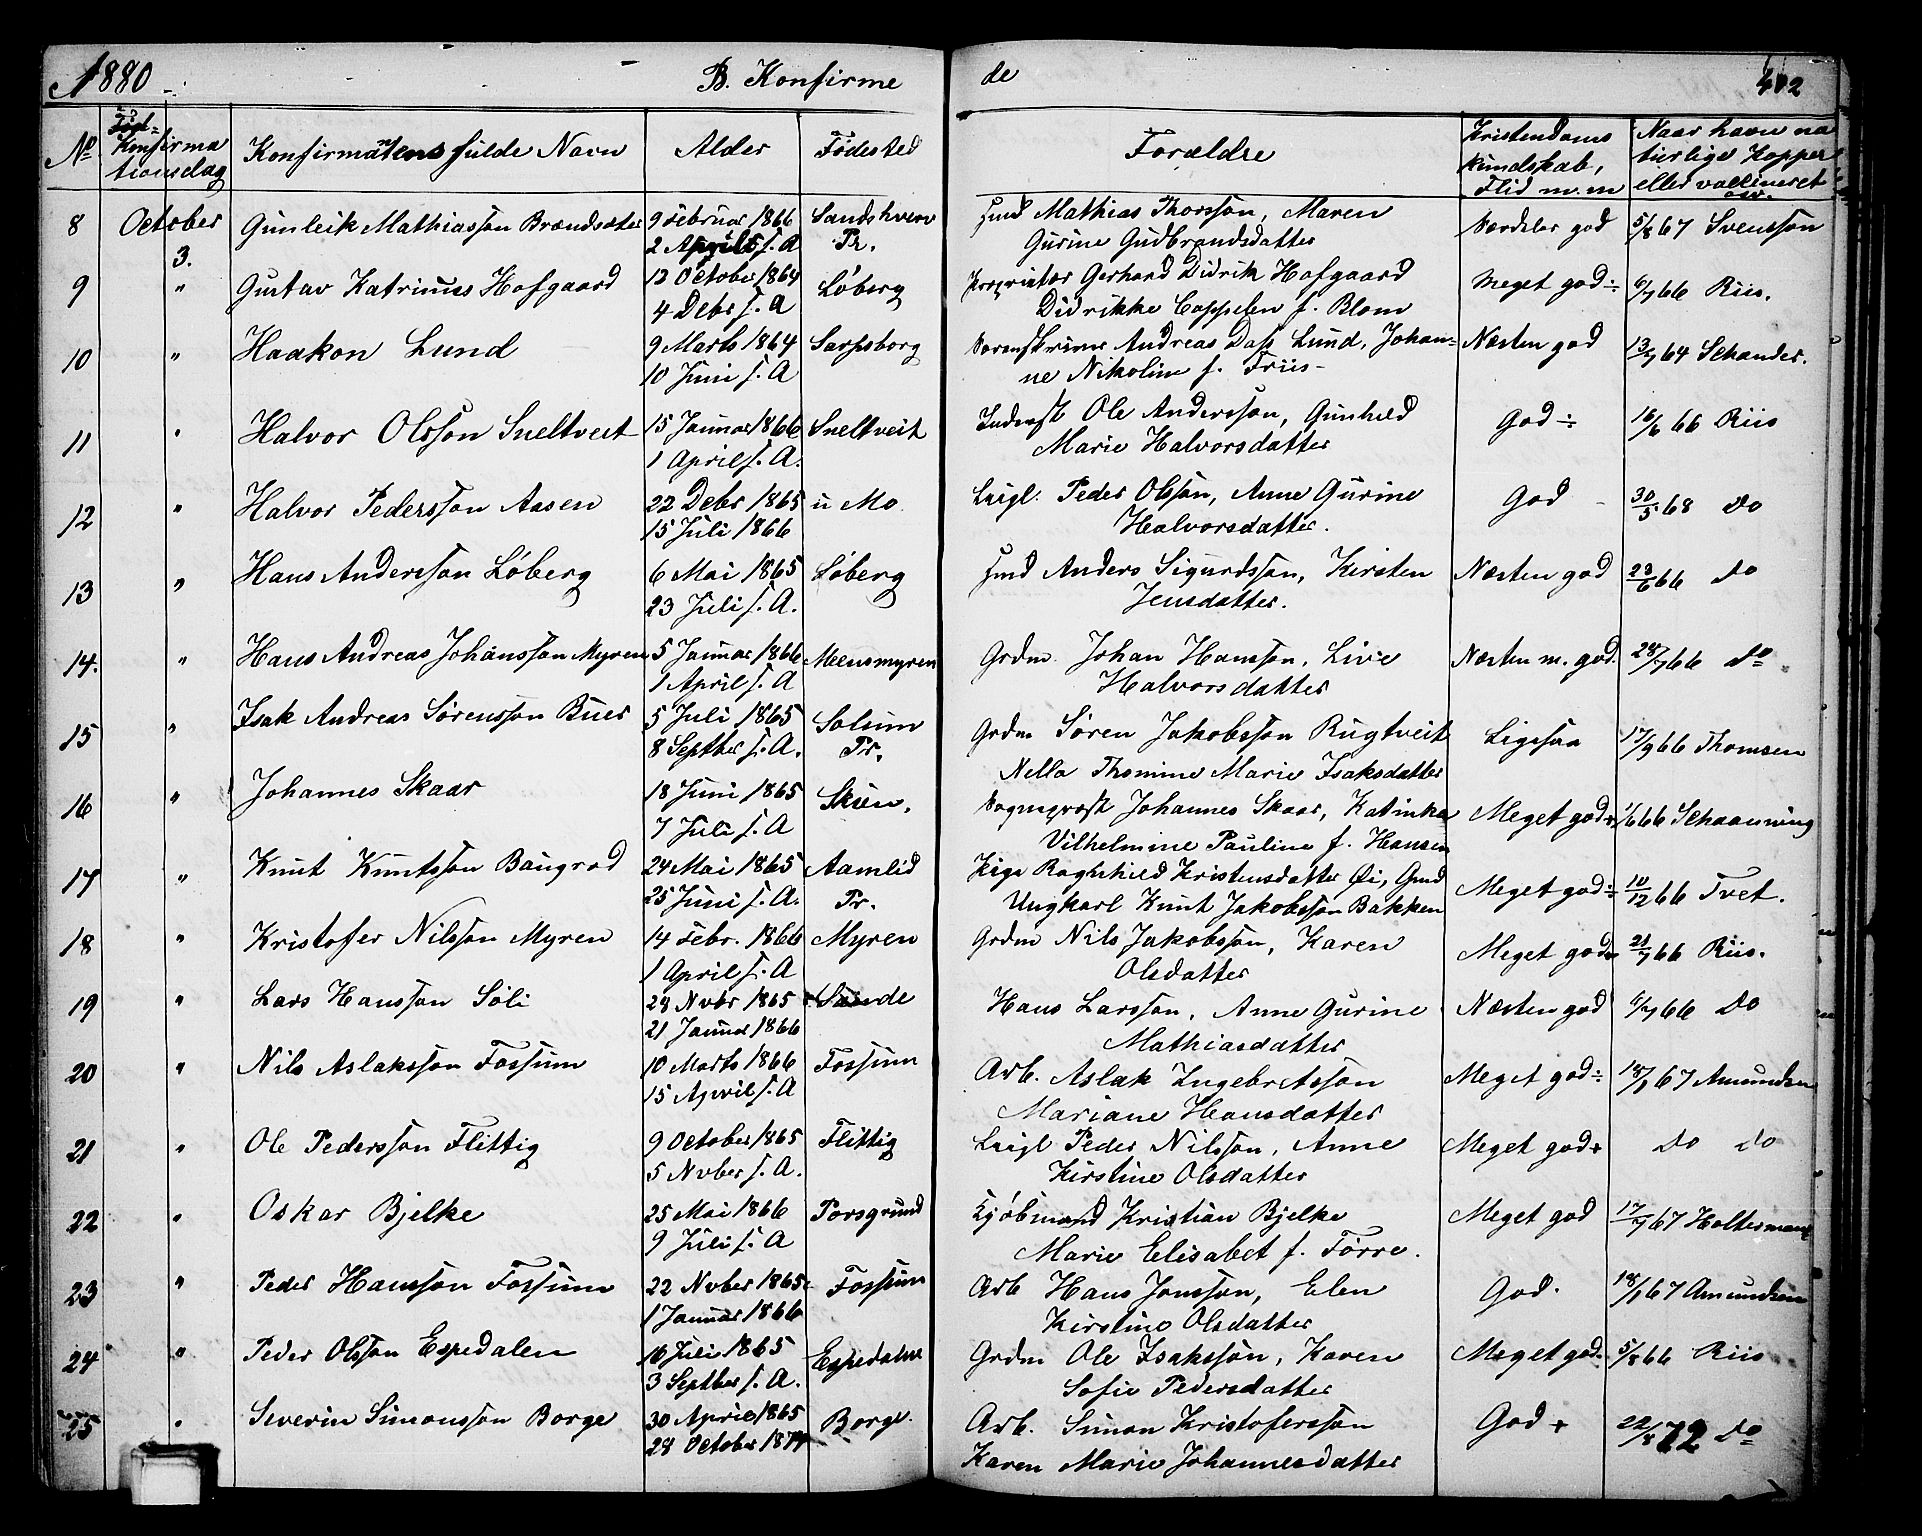 1880
B. Konfirme
de
No
Konfirma
tionsdag
Konfirmantens fulde Navn
Alder
Fødested
Forældre
Kristendoms
kundskab,
Flid m. m
Naar havn na
turlige Kopper
eller vaccineret
8 October 3. Gunleik Mathiasson Brændsæter 9 Februar 1866 Sandshverv Mathias Thorsson, Maren god 5/8 67 Svensson
2 April s. A Pr. Gurine Gudbrandsdatter
9 " Gustav Katrinus Hofgaard 12 October 1864 Løberg Proprietær Gerhard Didrik Hofgaard Meget god ÷ 6/7 66 Riis.
4 Debr s. A Didrikke Cappelen f. Blom
10 " Haakon Lund 9 Marts 1864 Sarpsborg Sorenskriver Andreas Dass Lund, Johan= Næsten god 64 Schander.
10 Juni s. A ne Nikoline f. Friis
11 " Halvor Olsson Sneltveit 15 Januar 1866 Sneltveit Inderst Ole Andersson, Gunhild God ÷ 16/6 66 Riis
1 April s. A. Marie Halvorsdatter
12 " Halvor Pedersson Aasen 22 Debr 1865 u Mo Leigl. Peder Olsson, Anne Gurine God 30/5 68 Do
15 Juli 1866 Halvorsdatter.
13 " Hans Andersson Løberg 6 Mai 1865 Løberg Anders Sigurdsson, Kirsten Næsten god 23/6 66 Do
23 Juli s. A. Jensdatter.
14. " Hans Andreas Johansson Myren 5 Januar 1866 Meensmyren Grdm. Johan Hansson, Live Næsten m. god. 28/7 66 Do
1 April s. A Halvorsdatter
15 " Isak Andreas Sørensson Buer 5 Juli 1865 Solum Grdm Søren Jakobsson Rugtveit Ligesaa 17/9 66 Thomsen
8 Septber s. A. Pr. Nella Thomine Marie Isaksdatter
16 " Johannes Skaar 18 Juni 1865 Skien. Sogneprest Johannes Skaar, Katinka Meget god + 1/6 66 Schaanning
7 Juli s. A Vilhelmine Pauline f. Hansen
17 " Knut Knutsson Baugrod 24 Mai 1865 Aamlid Pige Raghnhild Kristensdatter Øi, Meget god ÷ 10/12 66 Tvet.
25 Juni s. A. Pr. Ungkarl Knut Jakobsson Bakken
18 " Kristofer Nilsson Myren 14 Febr. 1866 Myren Grdm Nils Jakobsson, Karen Meget god 21/7 66 Riis.
1 April s. A Olsdatter
19 " Lars Hansson Søli 28 Nvbr 1865 Sande Hans Larsson, Anne Gurine Næsten god 6/7 66 Do
21 Januar 1866 Mathiasdatter
20 " Nils Aslaksson Fossum 10 Marts 1866 Fossum Arb. Aslak Ingebretsson Meget god ÷ 18/1 67 Amundsen
15 April s. A Mariane Hansdatter
21 " Ole Pedersson Flittig 9 October 1865 Flittig Leigl Peder Nilsson, Anne Meget god + Do Do
5 Nvber s. A. Kirstine Olsdatter
22 " Oskar Bjelke 25 Mai 1866 Porsgrund Kjøbmand Kristian Bjelke Meget god 17/7 67 Holtermann
9 Juli s. A Marie Elisabet f. Førre.
23 " Peder Hansson Fossum 22 Nvber 1865 Fossum Arb Hans Jonsson, Elen God. 18/1 67 Amundsen
1 Januar 1866 Kirstine Olsdatter
24 " Peder Olsson Espedalen 16 Juli 1865 Espedalen Grdm Ole Isaksson, Karen Meget god. 5/8 66 Riis
3 Septber s. A. Sofie Pedersdatter
25 " Severin Simonsson Borge 30 April 1865 Borge. Arb. Simon Kristofersson God + 22/8 72 Do
28 October Karen Marie Johannesdatter